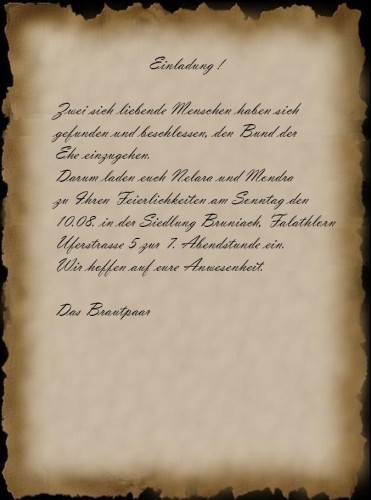 Einladung !
Zwei sich liebende Menschen haben sich
gefunden und beschlossen, den Bund der
Ehe einzugehen.
Darum laden euch Nelara und Mondra
zu Ihren Feierlichkeiten am Sonntag den
10.08. in der Siedlung Bruniach, Falathlorn
Uferstrasse 5 zur 7. Abendstunde ein.
Wir hoffen auf eure Anwesenheit.
Das Brautpaar